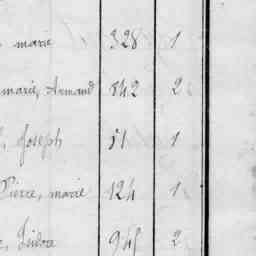 marie 328 1
marie, Armand 842 2
Joseph 51 1
Pierre, marie 124 1
Isidore 945 2